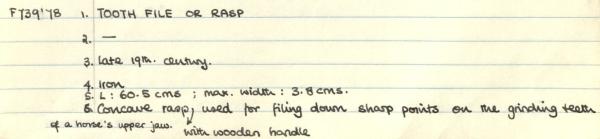 F739'78 1. TOOTH FILE OR RASP
2. —
3. Late 19th. century.
4. Iron
5. L : 60.5 cms ; max. width : 3.8 cms.
6. Concave rasp, used for filing down sharp points on the grinding teeth
of a horse's upper jaw. with wooden handle